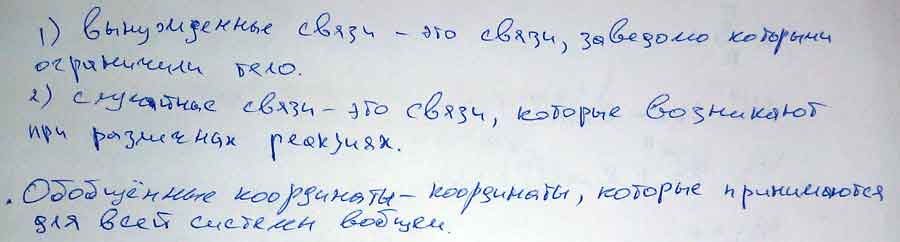 1) вынужденные связи – это связи, заведомо которыми
ограничили тело.
2) случайные связи – это связи, которые возникают
при различных реакциях.
. Обобщённые координаты – координаты, которые принимаются
для всей системы вобщем.